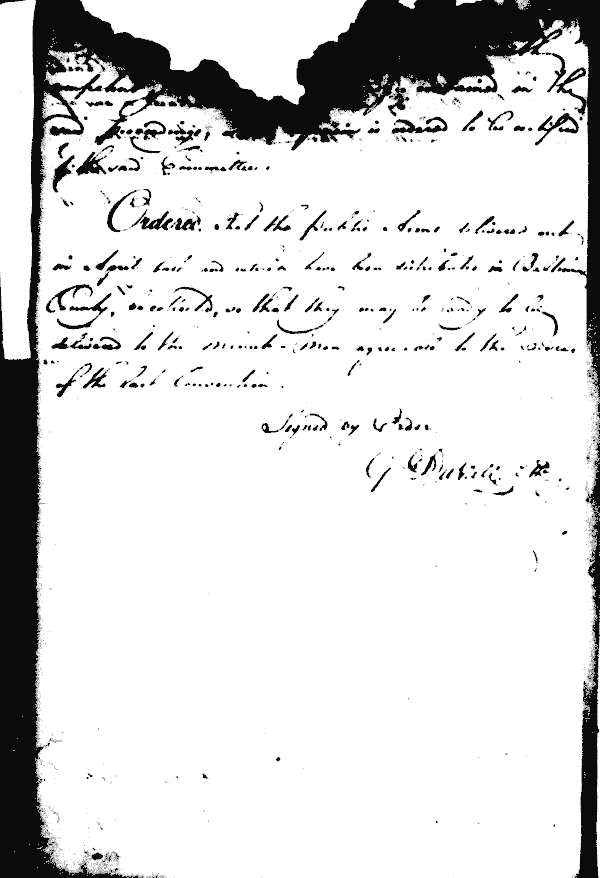 the
contained in the
said Proceedings, is ordered to be certified
to the said Committee.
Ordered that the public Arms delivered out
in April last and which have been distributed in Baltimore
County, be collected, so that they may be ready to be
delivered to the Minute-Men agreeable to the Advice
of the last Convention.
Signed by Order
G Duvall Clk